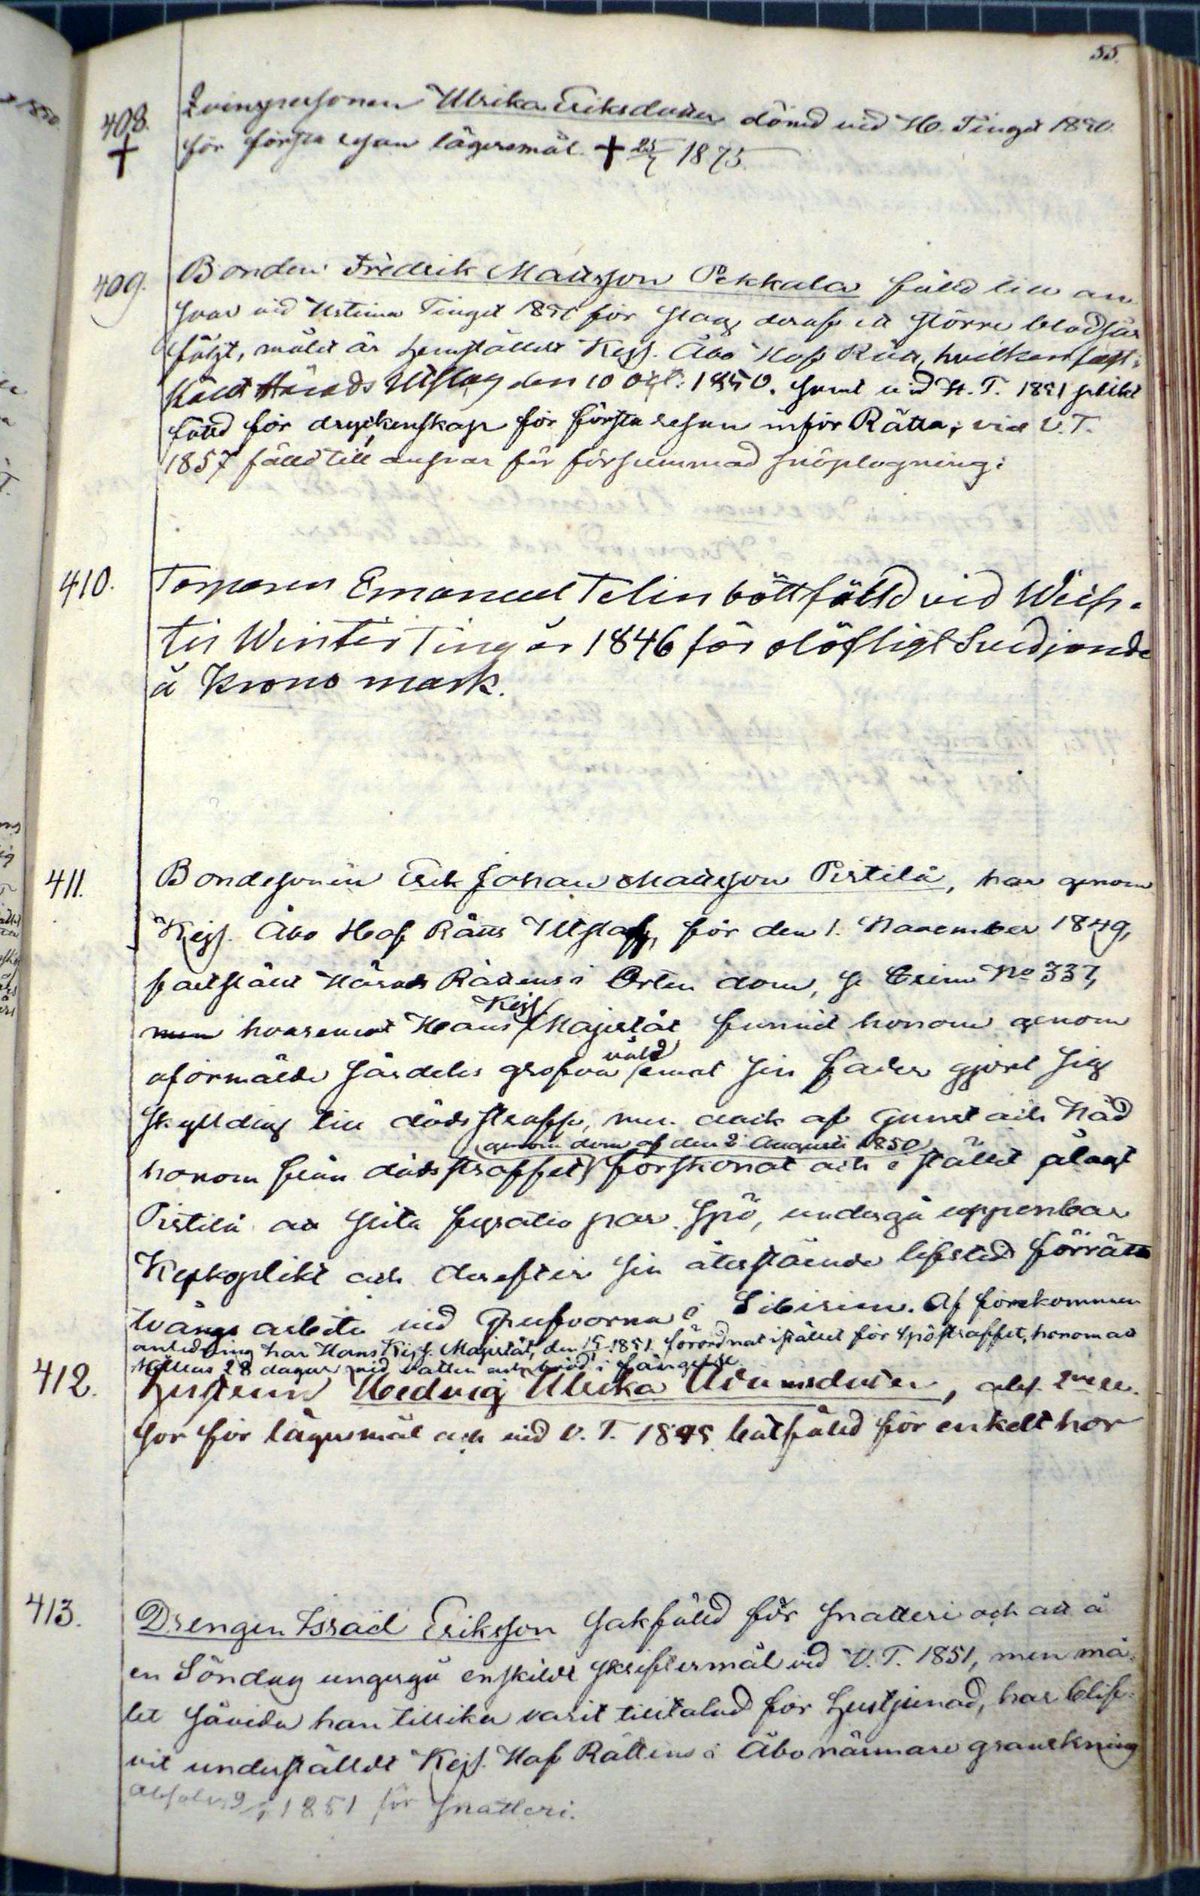 55.
408. Qvinspersonen Ulrika Eriksdotter dömd vid H. Tinget 1850
† för första resan lägersmål. † 25/7 1875.
409. Bonden Fredrik Mattsson Pekkala fälld till an
svar vid Urtima Tinget 1850 för slag deraf ett större blodsår
följt, målet är hemstäldt Kejs. Åbo Hof Rätt, hvilken fast-
stält Härads Utslag den 10 Oct: 1850. samt vid H. T. 1851 plikt
fälld för dryckenskap för första resan inför Rätta; vid V. T.
1857 fälld till ansvar för försummad snöplogning:
410. Torparen Emanuel Telin bötfälld vid
Winter Ting år 1846 för olofligt Svedjande
å Krono mark.
411. Bondesonen Erik Johan Mattsson Pistilä, har genom
Kejs. Åbo Hof Rätts Utslag, för den 1. November 1849,
fastställt Härads Rättens i Orten dom, se Crim No 337,
men hvaremot Hans Kejs. Majestät funnit honom genom
oförmälde särdeles grofva våld emot sin fader gjort sig
skylldig till dödsstraff, men dock af gunst och Nåd
genom dom af den 2 Augusti 1850
honom från dödsstraffet förskonat och i stället ålagt
Pistilä att slita fyratio par Spö, undergå uppenbar
Kyrkoplikt och derefter sin återstående lifstid förrätta
tvångs arbete vid Grufvorna i Sibirien. Af förekommen
anledning har Hans Kejs. Majestät den 1851 förordnat istället för Spöstraffet, honom att
hållas 28 dagar vid vatten och bröd i fängelse.
412. Hustrun Hedvig Ulrika, abs. 2ne re-
sor för lägersmål och vid V. T. 1845 bötfälld för enkelt hor
413. Drengen Israel Eriksson sakfälld för snatteri och att å
en Söndag ungergå enskildt skriftermål vid V. T. 1851, men må-
let såvida han tillika varit tilltalad för, har blif-
vit underställdt Kejs. Hof Rättens i Åbo närmare granskning
absolv. 9/ 1851 för snatteri.